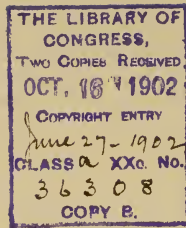 THE LIBRARY OF
CONGRESS,
TWO COPIES RECEIVED
OCT. 16 1902
COPYRIGHT ENTRY
June 27-1902
CLASS a XXc. No.
36308
COPY B.